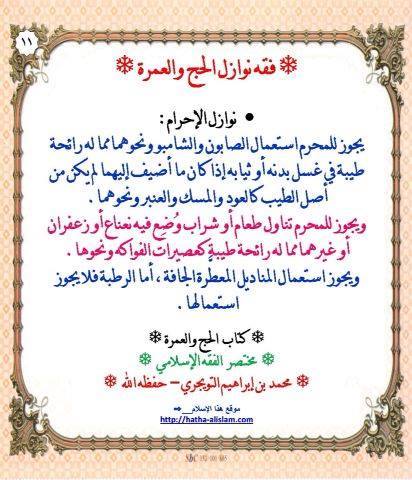 ١١
❄ فقه نوازل الحج والعمرة ❄
● نوازل الإحرام :
يجوز للمحرم استعمال الصابون والشامبو ونحوهما مما له رائحة
طيبة في غسل بدنه أو ثيابه إذا كان ما أضيف إليهما لم يكن من
أصل الطيب كالعود والمسك والعنبر ونحوهما .
ويجوز للمحرم تناول طعام أو شراب وُضِع فيه نعناع أو زعفران
أو غيرهما مما له رائحة طيبة كعصيرات الفواكه ونحوها .
ويجوز استعمال المناديل المعطرة الجافة ، أما الرطبة فلا يجوز
استعمالها .
❄ كتاب الحج والعمرة ❄
❄ مختصر الفقه الإسلامي ❄
❄ محمد بن إبراهيم التويجري – حفظه الله ❄
موقع هذا الإسلام__➡
http://hatha-alislam.com